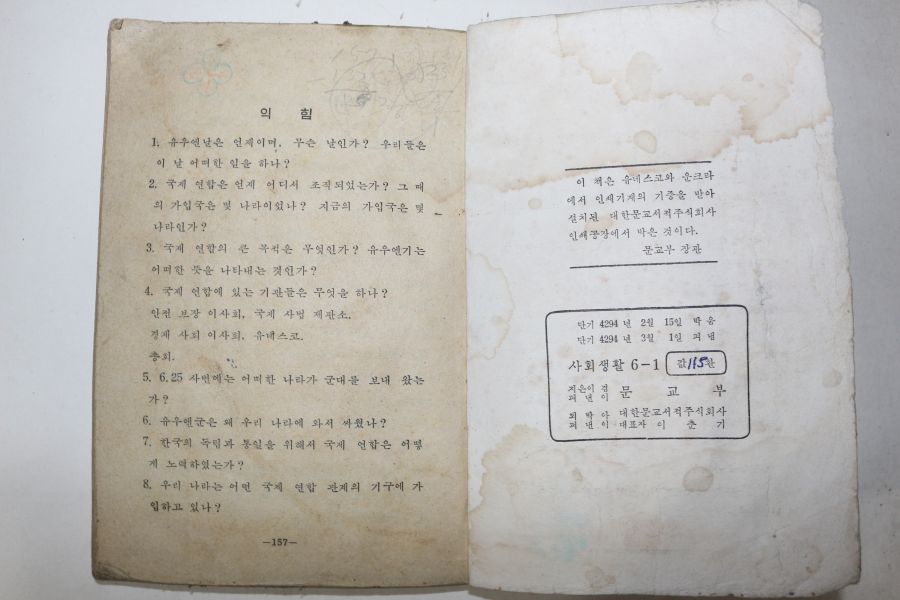 익 힘
1. 유우엔날은 언제이며, 무슨 날인가? 우리들은
이 날 어떠한 일을 하나?
2. 국제 연합은 언제 어디서 조직되었는가? 그 때
의 가입국은 몇 나라이었나? 지금의 가입국은 몇
나라인가?
3. 국제 연합의 큰 목적은 무엇인가? 유우엔기는
어떠한 뜻을 나타내는 것인가?
4. 국제 연합에 있는 기관들은 무엇을 하나?
안전 보장 이사회, 국제 사법 재판소.
경제 사회 이사회, 유네스코.
총회.
5. 6.25 사변에는 어떠한 나라가 군대를 보내 왔는
가?
6. 유우엔군은 왜 우리 나라에 와서 싸웠나?
7. 한국의 독립과 통일을 위해서 국제 연합은 어떻
게 노력하였는가?
8. 우리 나라는 어떤 국제 연합 관계의 기구에 가
입하고 있나?
—157—
이 책은 유네스코와 운크라
에서 인쇄기재의 기증을 받아
설치된 대한문교서적주식회사
인쇄공장에서 박은 것이다.
문교부 장관
단기 4294 년 2월 15일 박음
단기 4294 년 3월 1일 펴냄
사회생활 6-1 값 115환
지은이 겸
펴낸이 문 교 부
펴 낸 이 대한문교서적주식회사
대표자 이 춘 기